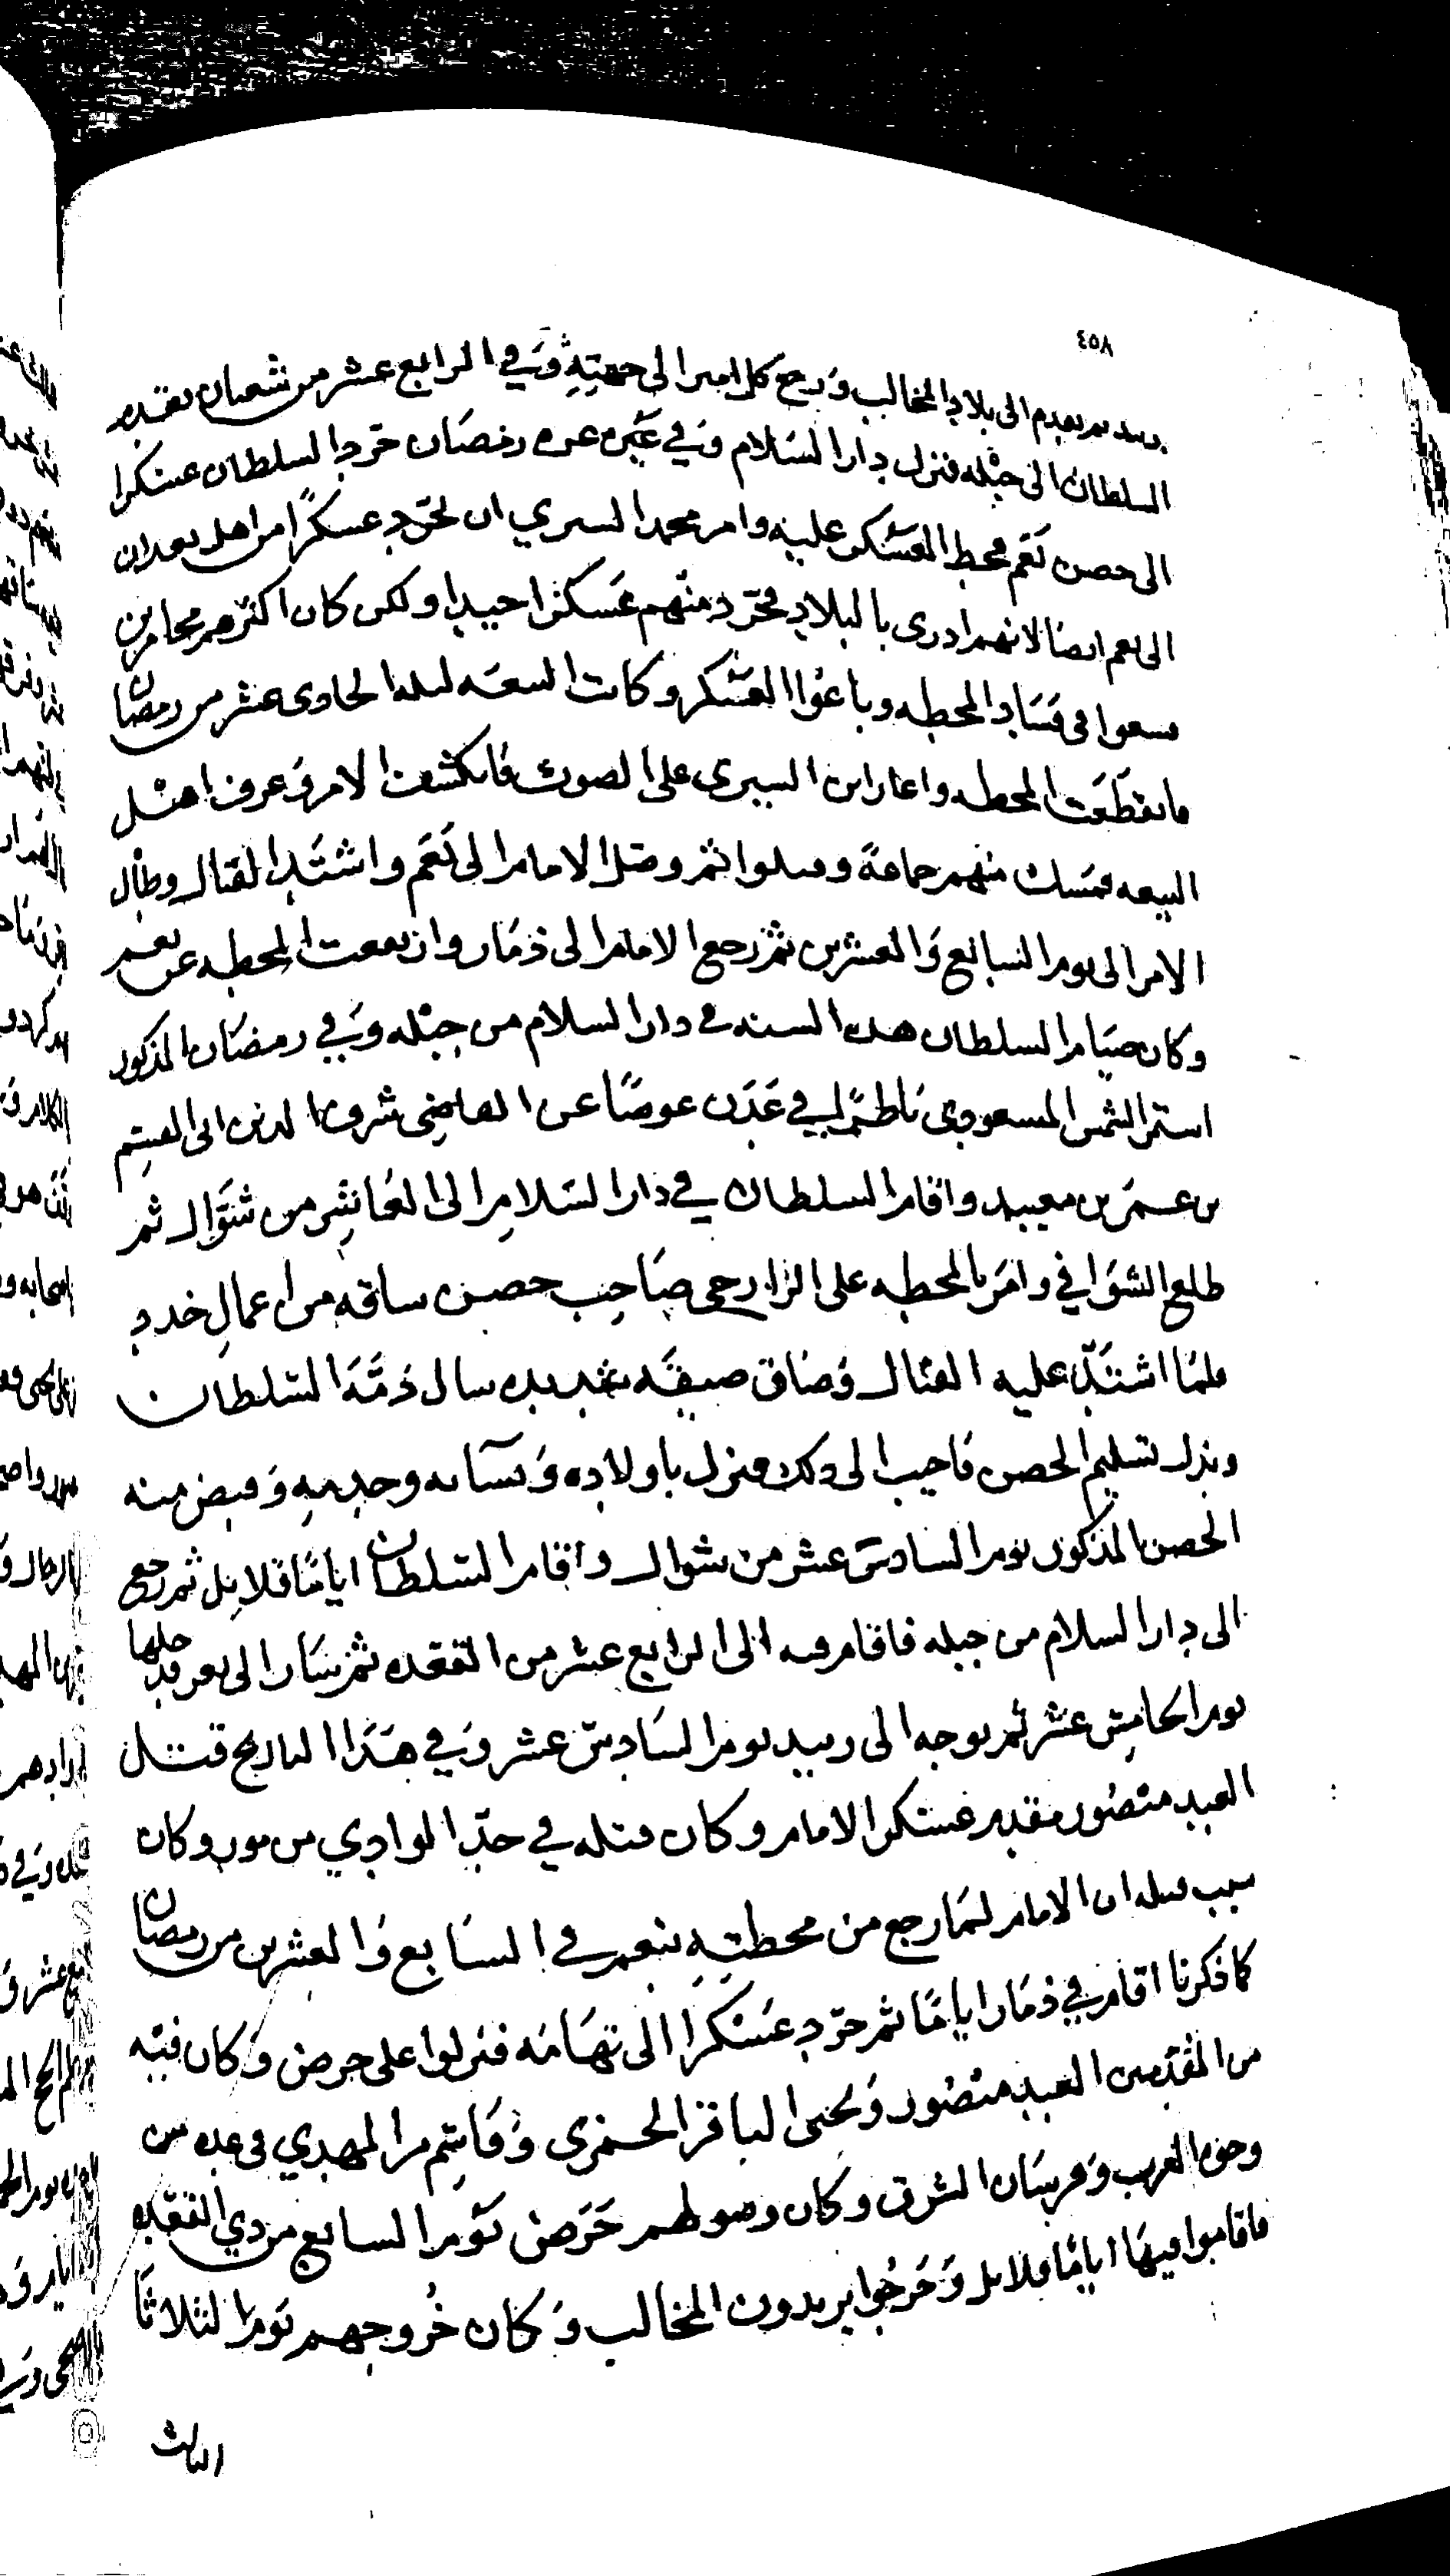 ٤٥٨
تقدم الى بلاد المخالب ورجع كل امير الى جهته وفي الرابع عشر من شعبان تقدم
السلطان الى جبله فنزل دار السلام وفي غره رمضان جرد السلطان عسكرا
الى حصن نعم محط العسكر عليه وامر محمد السيري ان يجرد عسكرًا من اهل بعدان
الى نعم ايضا لانهم ادرى بالبلاد فجرد منهم عسكرا جيدا ولكن كان اكثرهم مجامرين
فسعوا في فساد المحطه وباعوا العسكر وكانت البيعه ليله الحادي عشر من رمضان
فانقطعت المحطه واغار ابن السيري على الصوت فانكشف الامر وعرف اهل
البيعه فمسك منهم جماعة وقتلوا ثم وصل الامام الى نعم واشتد القتال وطال
الامر الى يوم السابع والعشرين ثم رجع الامام الى ذمار وارتفعت المحطه عن نعم
وكان صيام السلطان هذه السنه في دار السلام من جبله وفي رمضان المذكور
استمر الشمس المسعودي ناظرًا في عدن عوضًا عن القاضي شرف الدين ابي القسم
بن عمر بن معيبد واقام السلطان في دار السلام الى العاشر من شوال ثم
طلع الشوافي وامر بالمحطه على الزارحي صاحب حصن ساقه من اعمال خدد
فلما اشتد عليه القتال وضاق ضيقه شديده سال ذمة السلطان
وبذل تسليم الحصن فاجيب الى ذلك فنزل باولاده ونسائه وحريمه وقبض منه
الحصن المذكور يوم السادس عشر من شوال واقام السلطان ايامًا قلايل ثم رجع
الى دار السلام من جبله فاقام فيه الى الرابع عشر من القعده ثم سار الى تعز فدخلها
يوم الخامس عشر ثم توجه الى زبيد يوم السادس عشر وفي هذا التاريخ قتل
العبد منصور مقدم عسكر الامام وكان قتله في حد الوادي من مور وكان
سبب قتله ان الامام لما رجع من محطته بنعم في السابع والعشرين من رمضان
كما ذكرنا اقام في ذمار ايامًا ثم جرد عسكرا الى تهامه فنزلوا على حرض وكان فيه
من المقدمين العبد منصور ويحيى الباقر الحمزي وقاسم المهدي في عده من
وجوه العرب وفرسان الشرق وكان وصولهم حرض يوم السابع من ذي القعده
فاقاموا فيها ايامًا قلايل وخرجوا يريدون المخالب وكان خروجهم يوم الثلاثا
الثالث